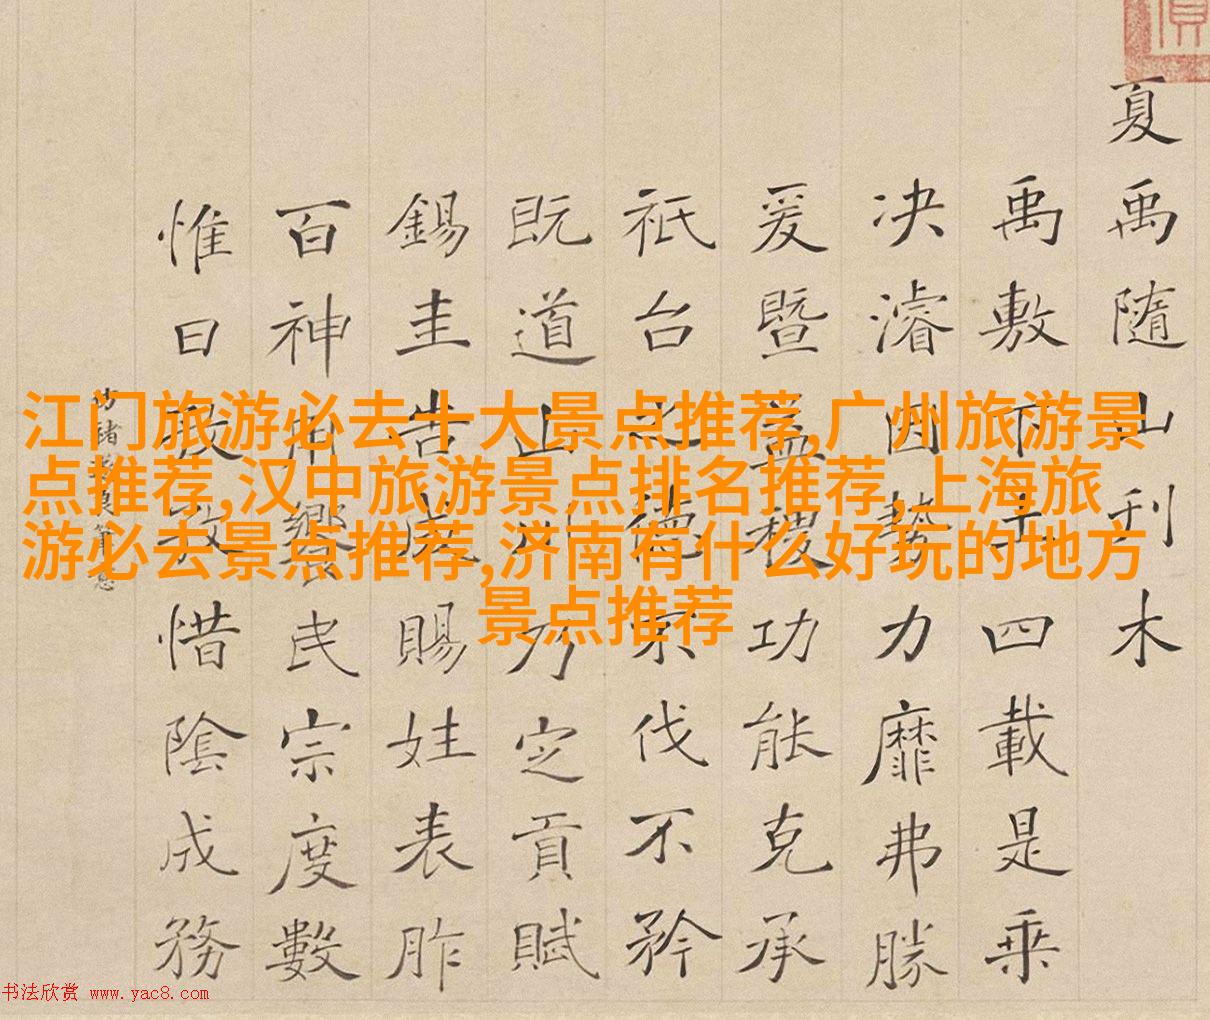 夏禹隨山利木
禹敷下土四載是乘
决濬因勢力靡弗勝
爰暨益稷功能克承
祇台德伐不矜
既道山川乃定貢賦
錫圭告成賜姓表胙
百神用饗民宗度數
惟日惜陰成務
江门旅游必去十大景点推荐,广州旅游景
点推荐,汉中旅游景点排名推荐,上海旅
游必去景点推荐,济南有什么好玩的地方
景点推荐
书法欣赏 www.yac8.com